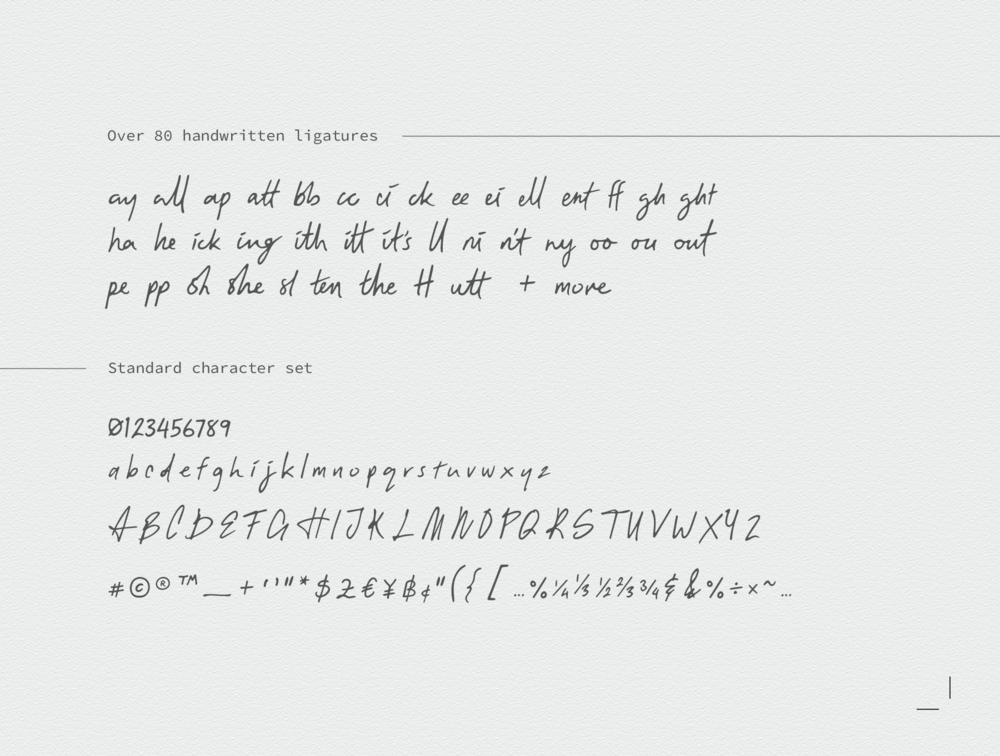 Over 80 handwritten ligatures
ay all ap att bb cc ci ck ee ei ell ent ff gh ght
ha he ick ing ith itt it's ll ni n't ny oo ou out
pe pp sh she sl ten the tt utt + more
Standard character set
0123456789
abcdefghijklmnopqrstuvwxyz
ABCDEFGHIJKLMNOPQRSTUVWXYZ
#©®™_+''"*$£€¥฿¢"({[…%¼⅓½⅔¾&%÷×~…